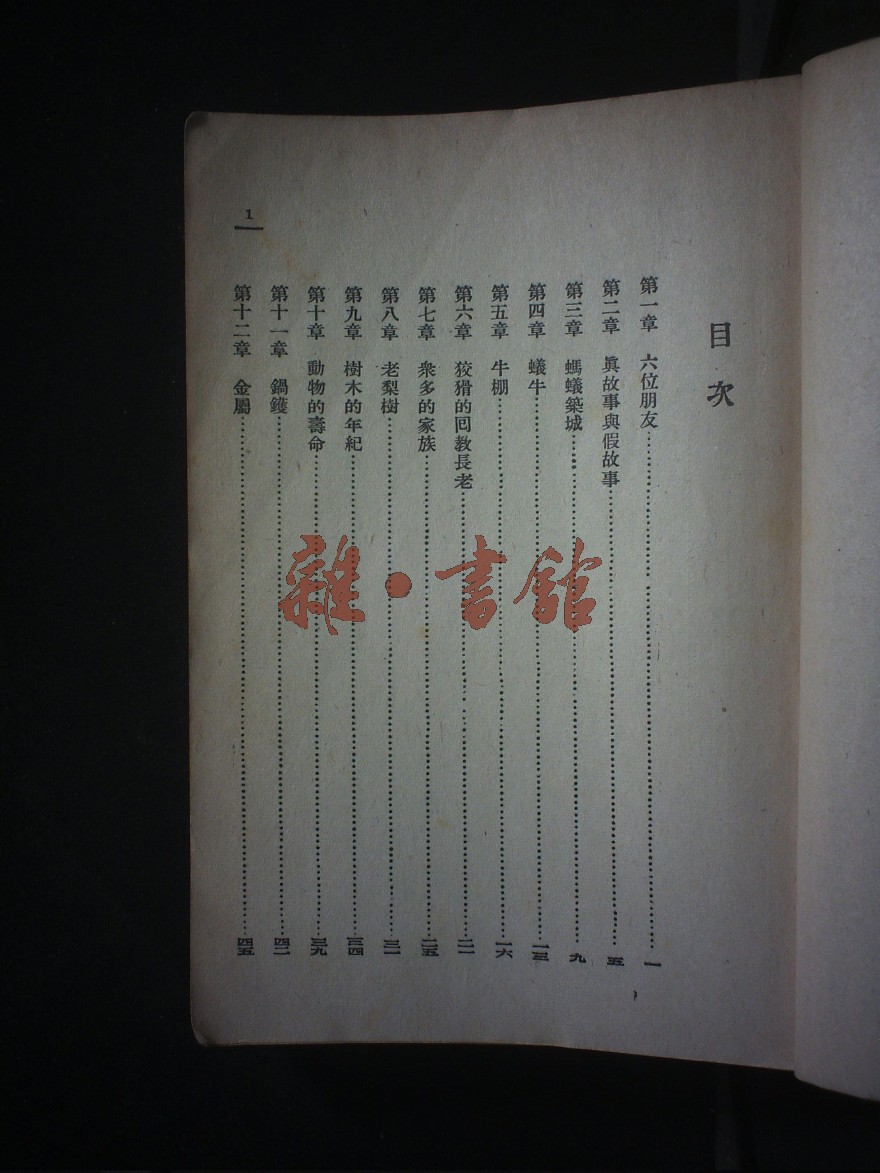 目次
第一章 六位朋友……一
第二章 眞故事與假故事……五
第三章 螞蟻築城……九
第四章 蟻牛……一三
第五章 牛棚……一六
第六章 狡猾的回教長老……二一
第七章 衆多的家族……二五
第八章 老梨樹……三一
第九章 樹木的年紀……三四
第十章 動物的壽命……三九
第十一章 鍋鑊……四二
第十二章 金屬……四五
1
雜·書館